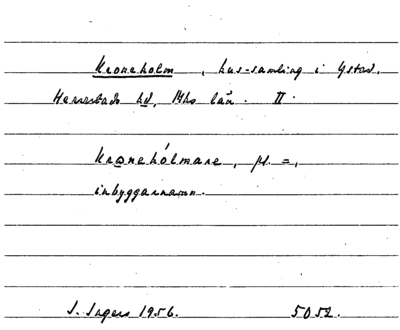 Kroneholm, hus-samling i Ystad,
Herrestads hd, Mhs län. II.
Kronehólmare, pl. =,
inbyggarnamn.
S. Ingers 1956. 5052.